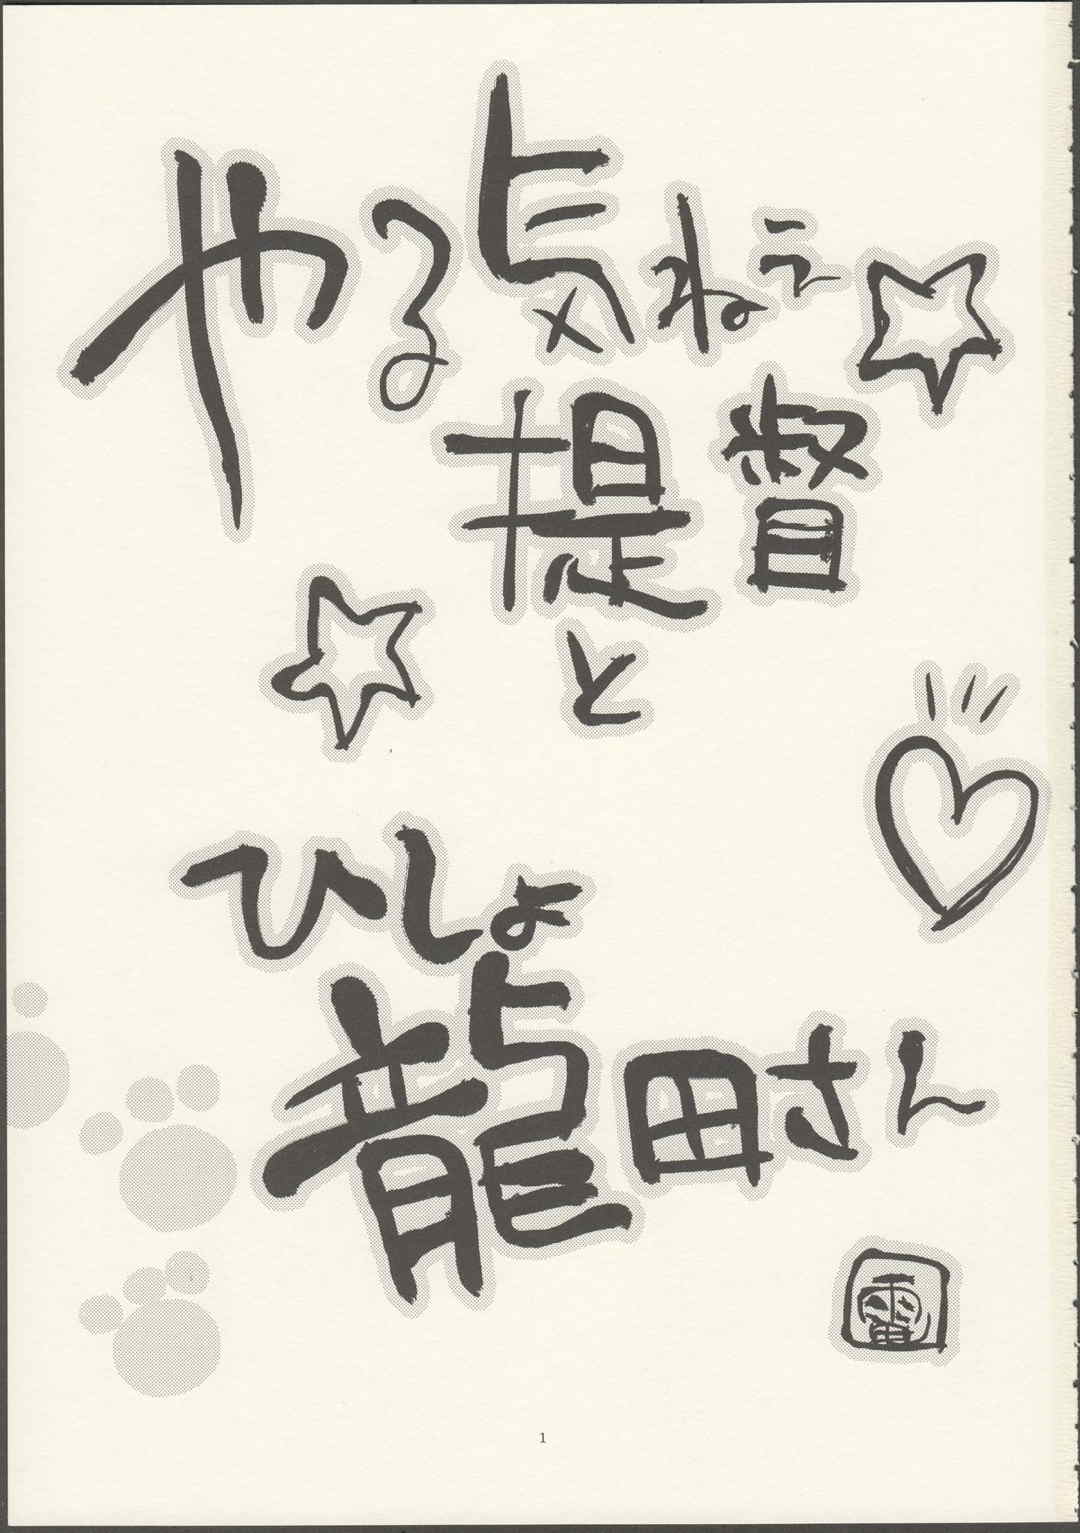 やる気ねェ☆
提督
と
ひしょ
龍田さん
雷
1